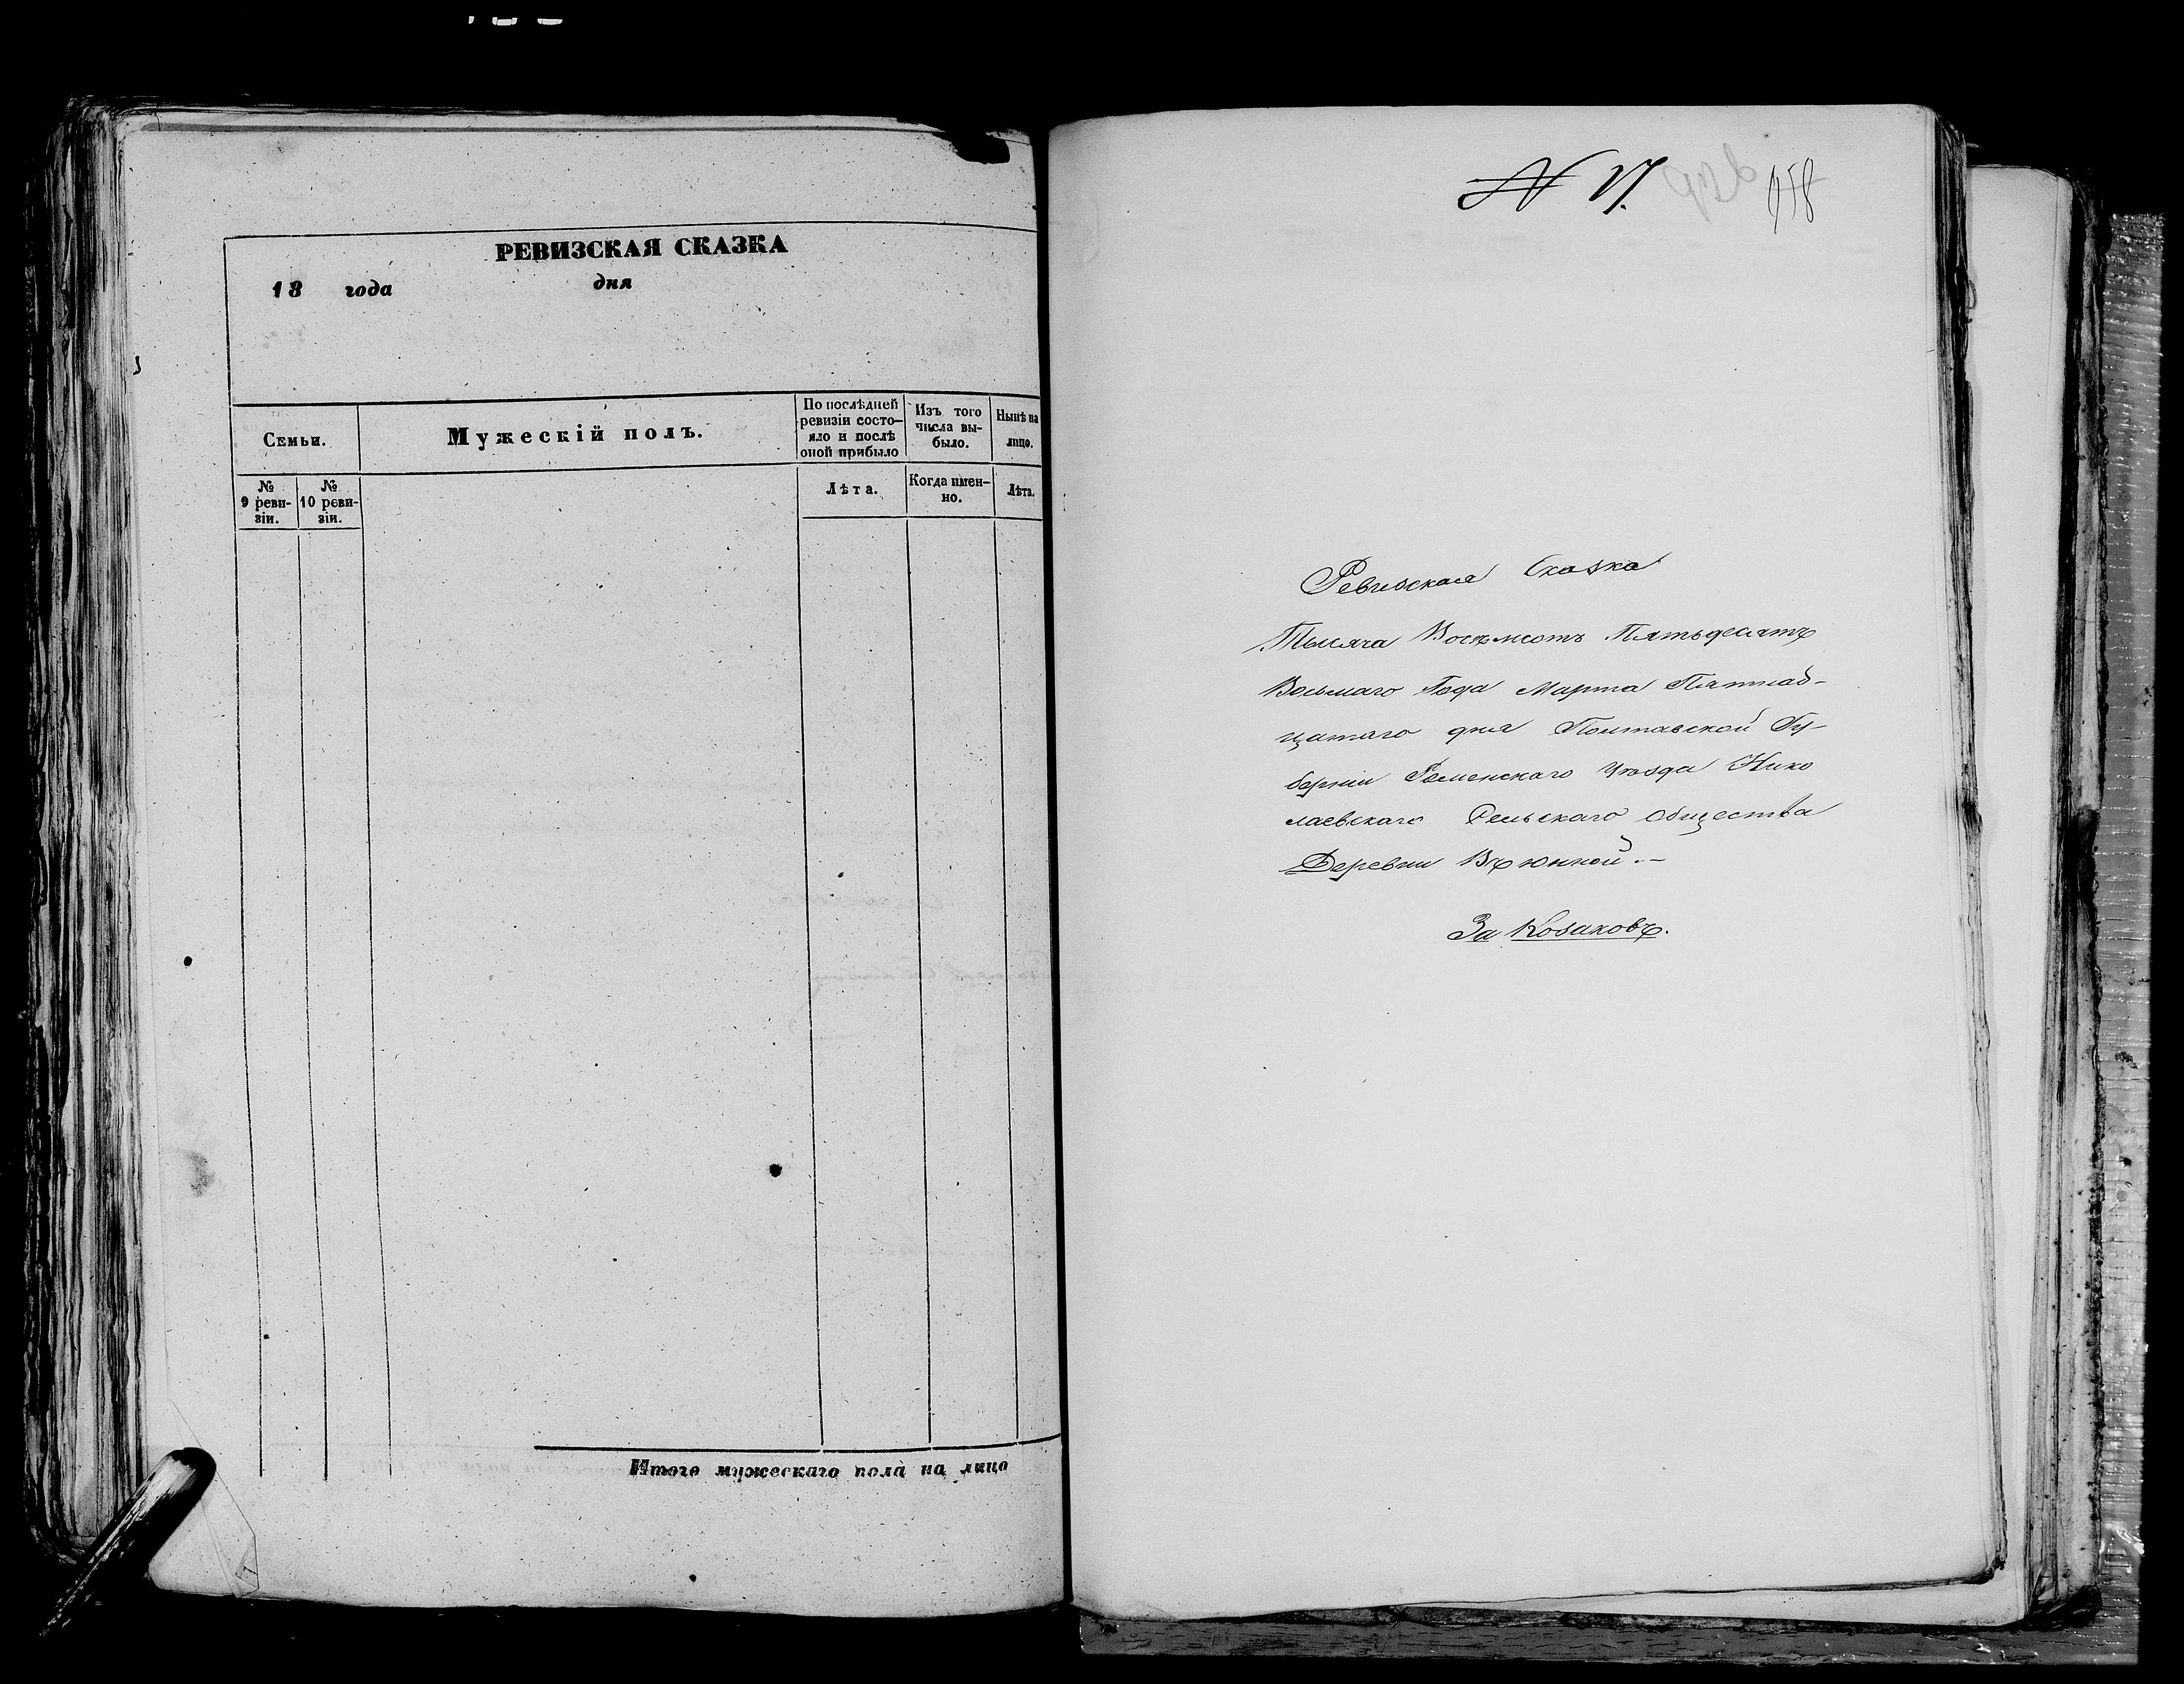 РЕВИЗСКАЯ СКАЗКА
18 года дня
Семьи.
Мужескій полъ.
По послѣдней ревизіи состо-
яло и послѣ
оной прибыло
Изъ того
числа вы-
было.
Нынѣ на
лицо.
№
9 реви-
зіи.
№
10 реви-
зіи.
Лѣта.
Когда имен-
но.
Лѣта.
Итого мужескаго пола на лицо
№ 17. 958
Ревизская Сказка
Тысяча Восѣмсотъ Пятьдесятъ
Восьмаго Года Марта Пятнад-
цатаго дня Полтавской Гу-
берніи Роменскаго уѣзда Нико
лаевскаго Сельскаго Общества
Деревни Вѣюнной.-
За Козаковъ.